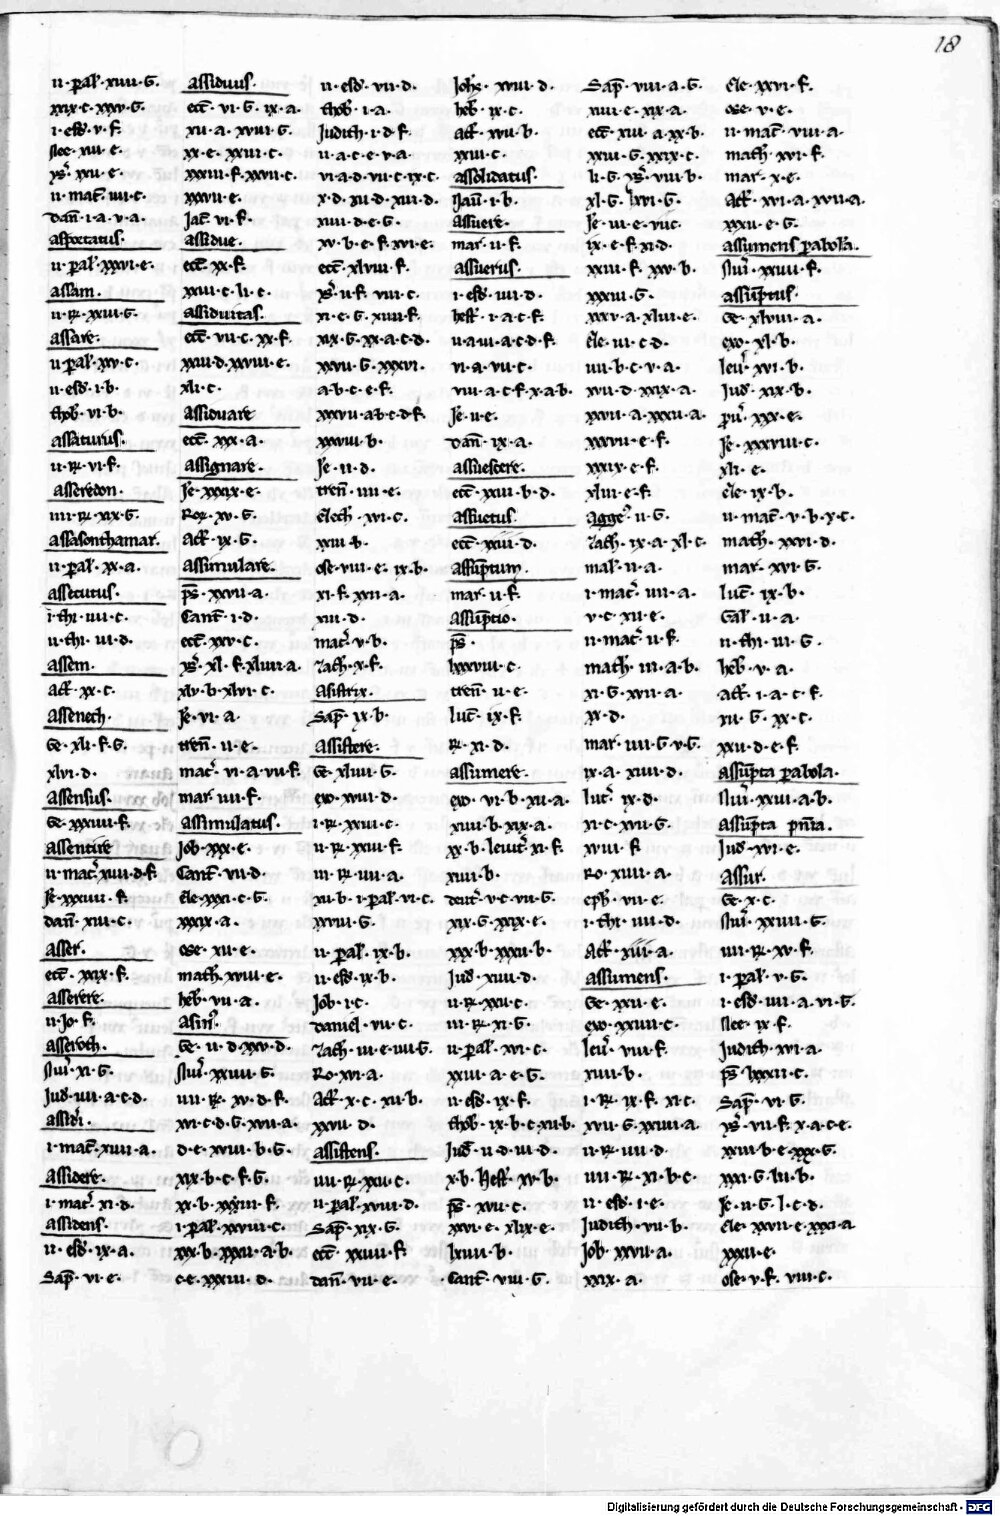 18
ii·pal̄·xviii·G·
xxix·c·xxxv·G·
i·esd̄·v·f·
Nee·xiii·e·
ys̄·xxi·e·
ii·mac̄·iiii·c·
dan̄·i·a·v·a·
asportatus·
ii·pal̄·xxvi·e·
assam·
ii·R·xxiii·G·
assare·
ii·pal̄·xxv·c·
ii·esd̄·i·b·
thob̄·vi·b·
assaturus·
ii·R·vi·f·
asseredon·
iiii·R·xix·G·
assasonthamar·
ii·pal̄·xx·a·
assecutus·
i·thi·iiii·c·
ii·thi·iii·d·
assem·
act̄·xx·c·
assenech·
Ge·xli·f·G·
xlvi·d·
assensus·
Ge·xxxiiii·f·
assentire
ii·mac̄·xiiii·d·f·
Je·xxxiiii·f·
dan̄·xiii·c·
asser·
ecc̄·xxix·f·
asserere·
ii·Jo·f·
asseroth·
Nū·xi·G·
Jud̄·iiii·a·c·d·
assidei·
i·mac̄·xiiii·a·
assidere·
i·mac̄·xi·d·
assidens·
ii·esd̄·ix·a·
Sap̄·vi·e·
assiduus·
ecc̄·vi·G·ix·a·
xii·a·xviii·G·
xx·e·xxiii·c·
xxxiii·f·xxvii·c·
xxxvii·e·
Jac̄·vi·f·
assidue·
ecc̄·xx·f·
xxiii·c·li·c·
assiduitas·
ecc̄·vii·c·xx·f·
xxiii·d·xxviii·e·
xli·c·
assiduare
ecc̄·xxx·a·
assignare·
Je·xxxix·e·
Ro·xv·G·
Act̄·ix·G·
assimulare·
ps̄·xxvii·a·
Cant̄·i·d·
ecc̄·xxv·c·
ys̄·xl·f·xliiii·a·
xlv·b·xlvi·c·
Je·vi·a·
tren̄·ii·e·
mac̄·vi·a·vii·f·
mar·iiii·f·
assimulatus·
Job·xxx·e·
Cant̄·vii·d·
ele·xxxi·c·G·
xxxix·a·
ose·xii·e·
math̄·xviii·e·
heb̄·vii·a·
asin9·
Ge·ii·d·xxv·d·
Nū·xxiiii·G·
iiii·R·xv·d·f·
xvi·c·d·G·xvii·a·
d·e·xviii·b·G·
xix·b·c·f·G·
xx·b·xxxiii·f·
i·pal̄·xxviii·c·
xxx·b·xxxii·a·b·
c·e·xxxiii·d·
ii·esd̄·vii·d·
thob̄·i·a·
Judith·i·d·f·
ii·a·c·e·v·a·
vi·a·d·vii·c·ix·c·
x·d·xii·d·xiii·d·
xiii·d·e·G·
xv·b·e·f·xvi·e·
ecc̄·xlviii·f·
ys̄·ii·f·viii·c·
xi·e·G·xiiii·f·
xix·G·xx·a·c·d·
xxvii·G·xxxvi·
a·b·c·e·f·
xxxvii·a·b·c·d·f·
xxxviii·b·
Je·ii·d·
tren̄·iiii·e·
elech·xvi·c·
xxiii·b·
ose·viii·e·ix·b·
xi·f·xxii·a·
xiii·d·
mac̄·v·b·
zach·x·f·
asistrix·
Sap̄·ix·b·
assistere·
Ge·xliiii·G·
exo·xviii·d·
i·R·xxii·c·
ii·R·xxiii·f·
iii·R·iiii·a·
xii·b·i·pal̄·vi·c·
xxviii·G·
ii·pal̄·ix·b·
ii·esd̄·ix·b·
Job·i·c·
daniel·vii·c·
zach·iii·e·iiii·G·
Ro·xvi·a·
Act̄·x·c·xii·b·
xxvii·d·
assistens·
iiii·R·xxii·c·
ii·pal̄·xviii·d·
Sap̄·xix·G·
ecc̄·xxiiii·f·
dan̄·vii·e·
Joh̄s·xviii·d·
heb̄·ix·c·
act̄·xvii·b·
xxiii·c·
assolidatus·
Naū·i·b·
assuere·
mar·ii·f·
assuerus·
i·esd̄·iiii·d·
hest̄·i·a·c·f·
ii·a·iii·a·c·d·f·
vi·a·vii·c·
viii·a·c·f·x·a·b·
Je·ii·e·
dan̄·ix·a·
assuescere·
ecc̄·xxiii·b·d·
assuetus·
ecc̄·xxiii·d·
assūptum·
mar·ii·f·
assūptio·
ps̄·
lxxxviii·c·
tren̄·ii·e·
luc̄·ix·f·
R·xi·d·
assumere·
exo·vi·b·xii·a·
xiiii·b·xix·a·
xx·b·leuit̄·xi·f·
xiiii·b·
deut̄·v·e·vii·G·
xix·G·xxix·e·
xxx·b·xxxii·b·
Jud·xiii·d·
ii·R·xxi·c·
iii·R·xi·G·
ii·pal̄·xvi·c·
xxiii·a·e·G·
ii·esd̄·ix·f·
thob̄·ix·b·c·xii·b·
Jud̄·ii·d·iii·d·
x·b·Hest̄·xv·b·
ps̄·xvii·c·
xxvi·e·xlix·e·
lxiiii·b·
Cant̄·viii·G·
Sap̄·viii·a·G·
xiiii·e·xix·a·
ecc̄·xiii·a·xx·b·
xxiii·G·xxix·c·
li·G·ys̄·viii·b·
xl·G·lxvi·G·
Je·iii·e·viic·
ix·e·f·xi·d·
xxiii·f·xxv·b·
xxxiii·G·
xxxv·a·xliii·e·
ele·iii·c·d·
iiii·b·c·v·a·
xvii·d·xxix·a·
xxvii·a·xxxii·a·
xxxvii·e·f·
xxxix·e·f·
xliii·e·f·
agge9·ii·G·
zach·ix·a·xl·c·
mal·ii·a·
i·mac̄·iiii·a·
v·c·xii·e·
ii·mac̄·ii·f·
math̄·iii·a·b·
xi·G·xvii·a·
xx·d·
mar·iiii·G·v·G·
ix·a·xiiii·d·
luc̄·ix·d·
xi·c·xvii·G·
xviii·f·
Ro·xiii·a·
eph̄·vii·e·
i·thi·iiii·d·
Act̄·xiii·a·
assumens·
Ge·xxii·e·
exo·xxiiii·c·
leū·viii·f·
xiiii·b·
i·R·ix·f·xi·c·
xvii·G·xxiiii·a·
ii·R·iiii·d·
iiii·R·xi·b·c·
ii·esd̄·i·e·
Judith·vii·b·
Job·xxvii·a·
xxix·a·
ele·xxvi·f·
ose·v·e·
ii·mac̄·viii·a·
math̄·xvi·f·
mar·x·e·
Act̄·xvi·a·xvii·a·
xxxii·e·G·
assumens pabola·
Nū·xxiiii·f·
assūptus·
Ge·xlviii·a·
exo·xl·b·
leū·xvi·b·
Jud·xix·b·
pū·xxx·e·
Je·xxxviii·c·
xli·e·
ele·ix·b·
ii·mac̄·v·b·x·c·
math·xxvi·d·
mar·xvi·G·
luc̄·ix·b·
Gal·ii·a·
ii·thi·iii·G·
heb̄·v·a·
act̄·i·a·c·f·
xii·G·xx·c·
xxii·d·e·f·
assūpta pabola·
Nū·xxiii·a·b·
assūpta pn̄ia·
Jud·xvi·e·
assur·
Ge·x·c·
Nū·xxiiii·G·
iiii·R·xv·f·
i·pal̄·v·G·
i·esd̄·iiii·a·vi·G·
Nee·ix·f·
Judith·xvi·a·
ps̄·lxxxii·c·
Sap̄·vi·G·
ys̄·vii·f·x·a·c·e·
xxiii·b·e·xxx·G·
xxxi·G·lii·b·
Je·ii·G·l·c·d·
ele·xxvii·e·xxxi·a
xxxii·e·
ose·v·f·viii·c·
Digitalisierung gefördert durch die Deutsche Forschungsgemeinschaft - DFG